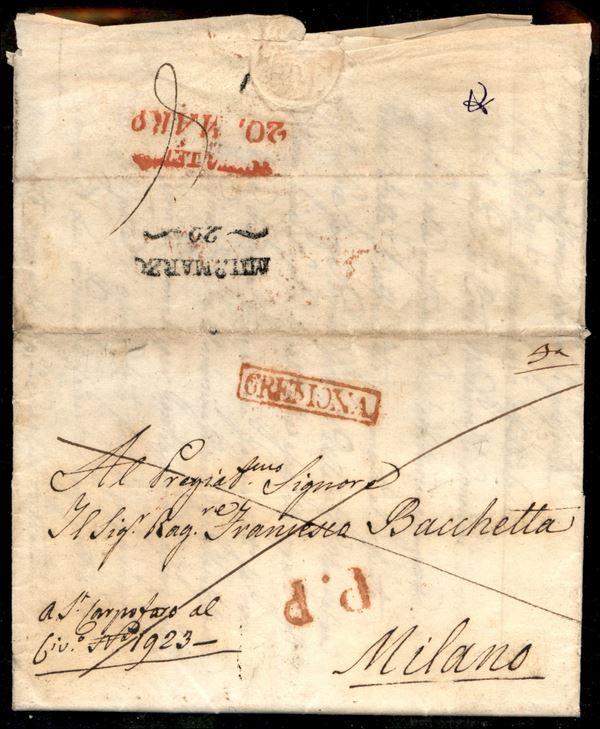 20. MARZ
MARZO
29
CREMONA
Al Pregiat.mo Signore
Il Sig.r Rag.re Francesco Bacchetta
P.P
a S.t Carpoforo al
Civ.o N.o 1923
Milano